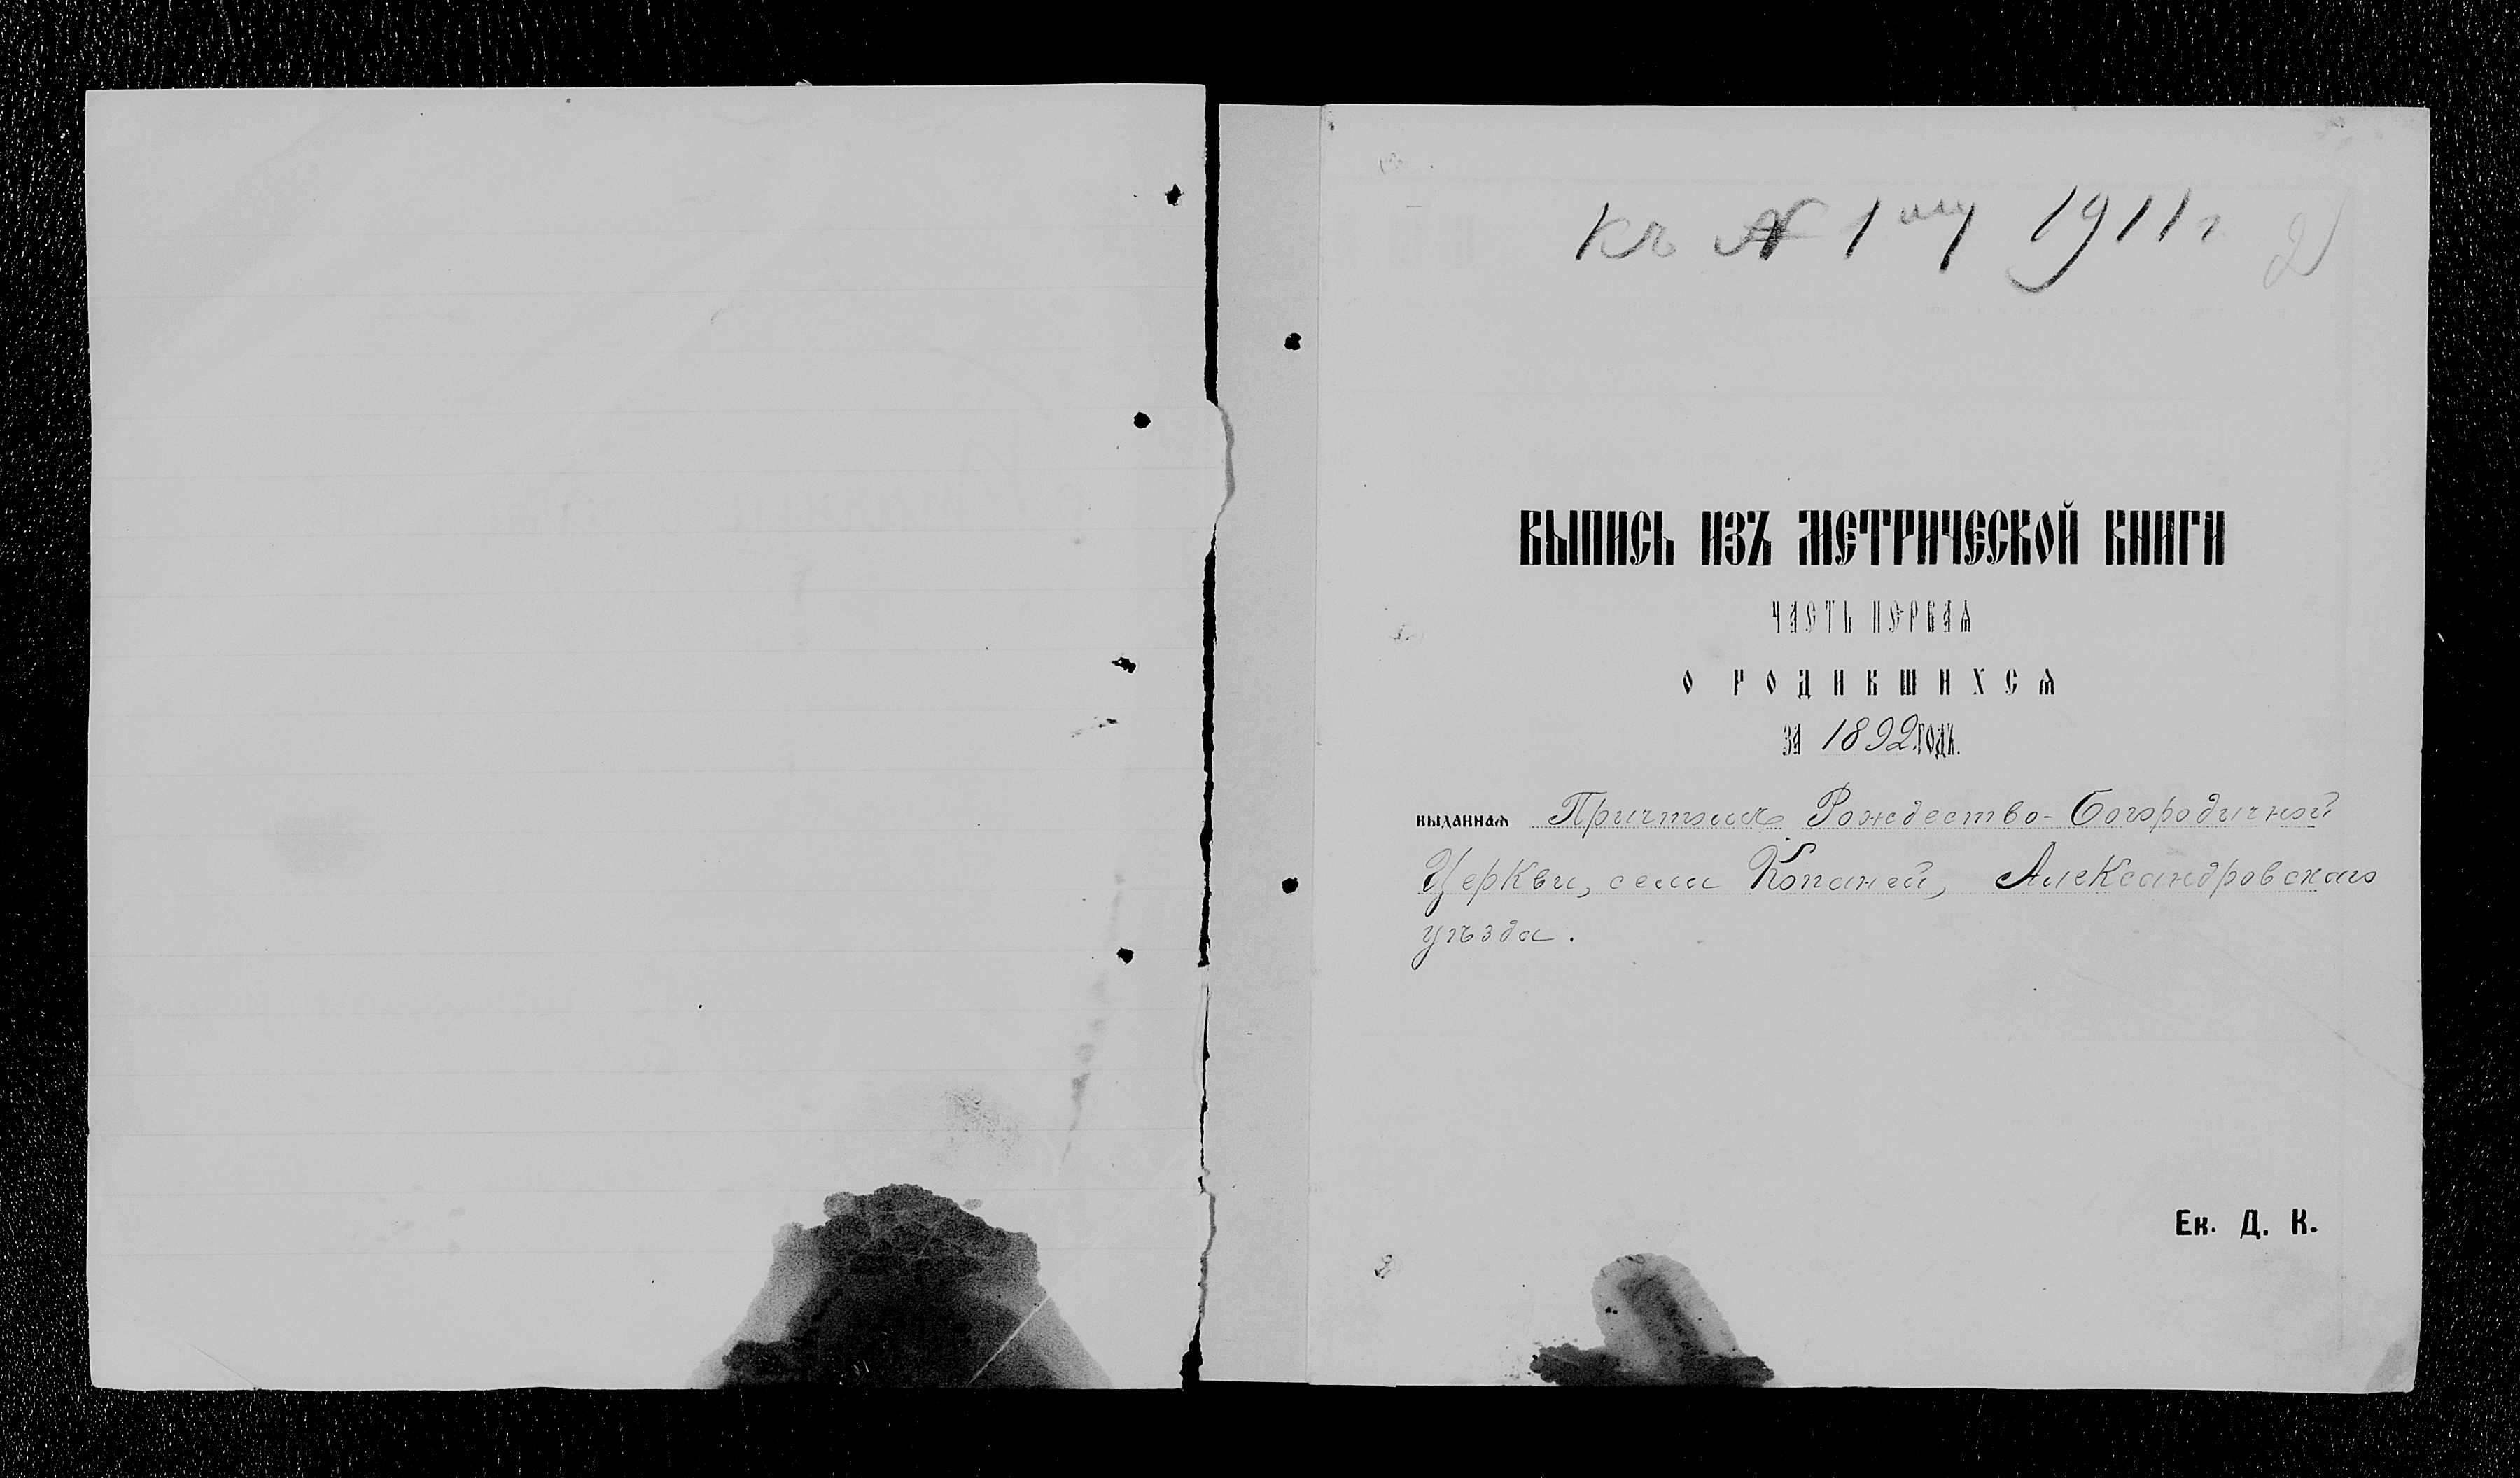 Къ № 1му 1911 г
2
ВЫПИСЬ ИЗЪ МЕТРИЧЕСКОЙ КНИГИ
ЧАСТЬ ПЕРВАѦ
О РОДИВШИХСѦ
ЗА 1892 ГОДЪ.
выданнаѧ Причтомъ Рождество-Богородичной
Церкви, села Копаней, Александровскаго
уѣзда.
Ек. Д. К.